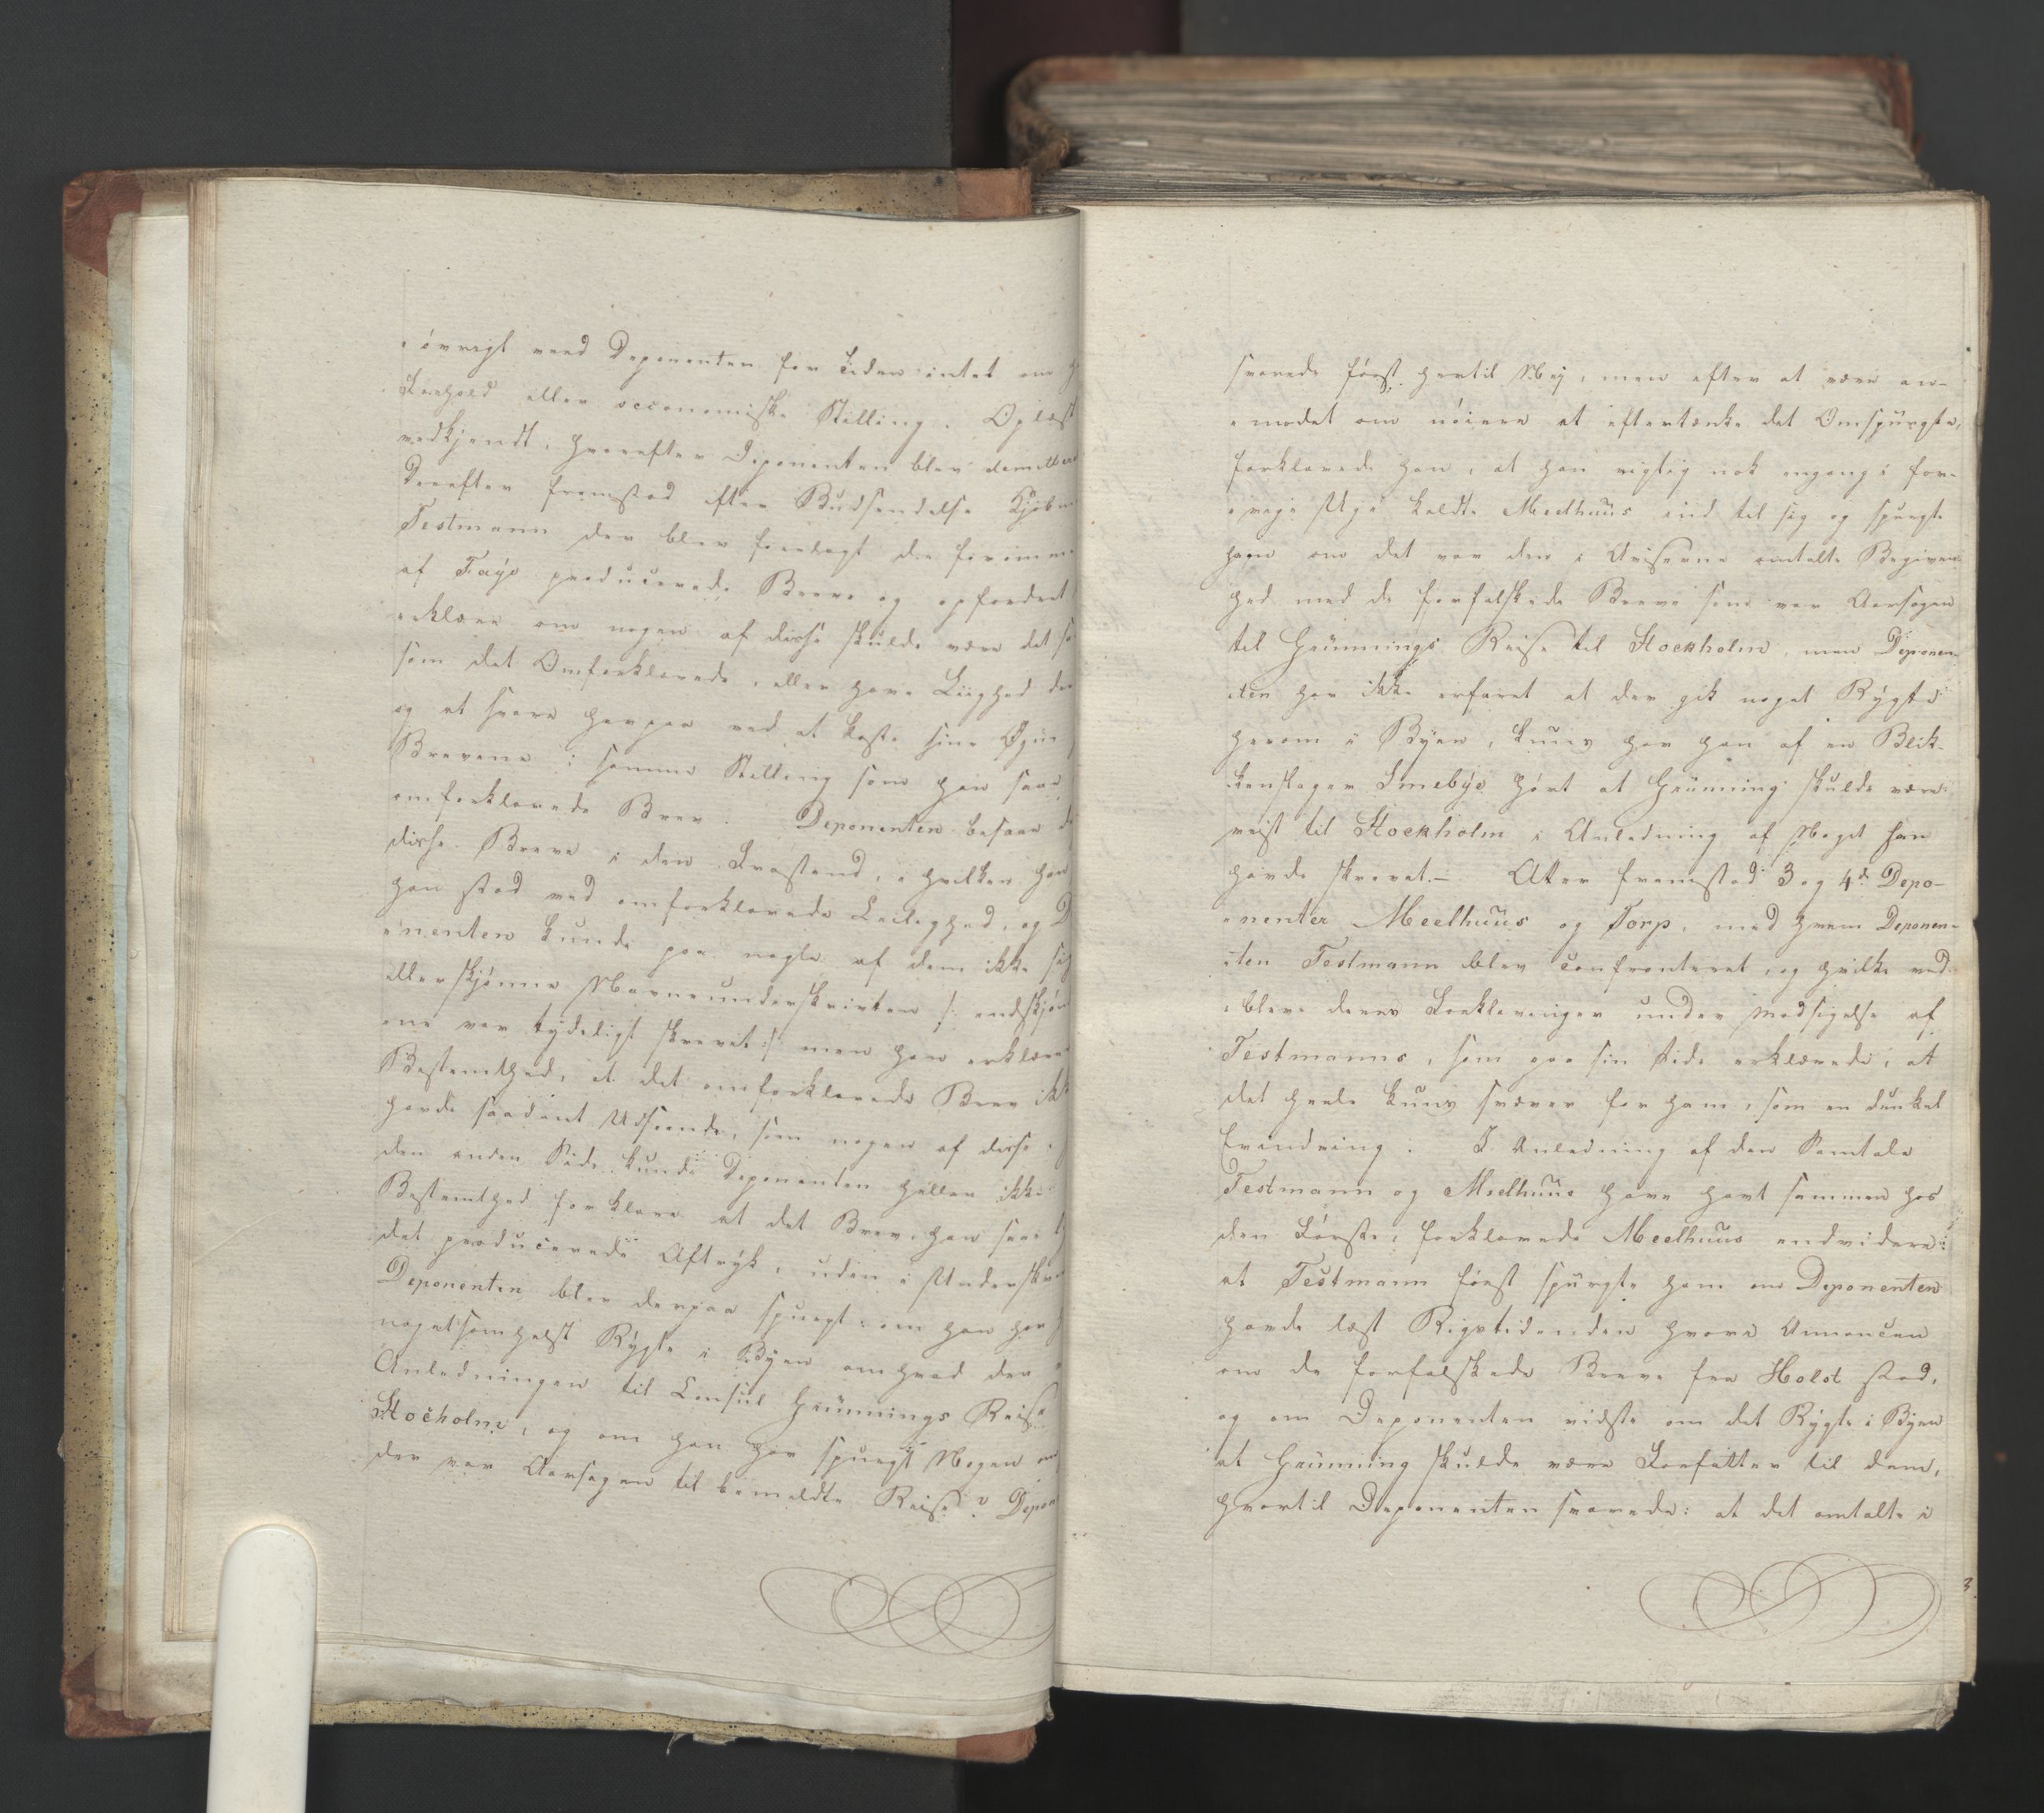 iøvrigt veed Deponenten for Tiden intet om
Forhold eller oeconomiske Stilling. Oplæst
vedkjendt, hvorefter Deponenten blev demitteret
Derefter fremstod efter Budsendelse Kjøbm
Testmann der blev forelagt de forommeldte
af Fayo producerede Breve og opfordret
erklære om nogen af disse skulde være det sa
som det Omforklarede, eller have Liighed der
og at svare herpaa ved at kaste sine Øyne
Brevene i samme Stilling som han saae
omforklarede Brev. Deponenten besaae d
disse Breve i den Frastand, i hvilken han
han stod ved omforklarede Leilighed, og D
nenten kunde paa nogle af dem ikke see
eller skjønne Navneunderskrivten /: endskjøn
ene var tydeligt skrevet :/ men han erklærer
Bestemthed, at det omforklarede Brev ikke
havde saadant Udseende, som nogen af disse,
den anden Side kunde Deponenten heller ikke
Bestemthed forklare at det Brev, han saae
det producerede Aftryk, uden i Underskriv
Deponenten blev derpaa spurgt: om han har
nogetsomhelst Rygte i Byen omhvad der
Anledningen til Consul Grünnings Reise
Stocholm, og om han har spurgt Nogen om
der var Aarsagen til bemeldte Reise? Depon
svarede først hertil Nej, men efter at være an-
modet om nöiere at eftertænke det Omspurgte,
forklarede han, at han rigtig nok engang i for-
rige Uge kaldte Meelhuus ind til sig og spurgte
ham om det var den i Aviserne omtalte Begiven-
hed med de forfalskede Breve som var Aarsagen
til Grünnings Reise til Stockholm, men Deponen-
ten har ikke erfaret at der gik noget Rygte
herom i Byen, kuns har han af en Blik-
kenslager Smebye hört at Grünning skulde være
reist til Stockholm i Anledning af Noget han
havde skrevet. – Atter fremstod 3 og 4de Depo-
nenter Meelhuus og Torp, med hvem Deponen-
ten Testmann blev confronteret, og hvilke ved-
bleve deres Forklaringer under Modsigelse af
Testmanns, som paa sin Side erklærede, at
det heele kuns svæver for ham, som en dunkel
Erindring. I Anledning af den Samtale
Testmann og Meelhuus have havt sammen hos
den Første, forklarede Meelhuus endvidere:
at Testmann først spurgte ham om Deponenten
havde læst Rigstidenden hvori Annoncen
om de forfalskede Breve fra Holst stod,
og om Deponenten vidste om det Rygte i Byen
at Grünning skulde være Forfatter til dem,
hvortil Deponenten svarede: at det omtalte i